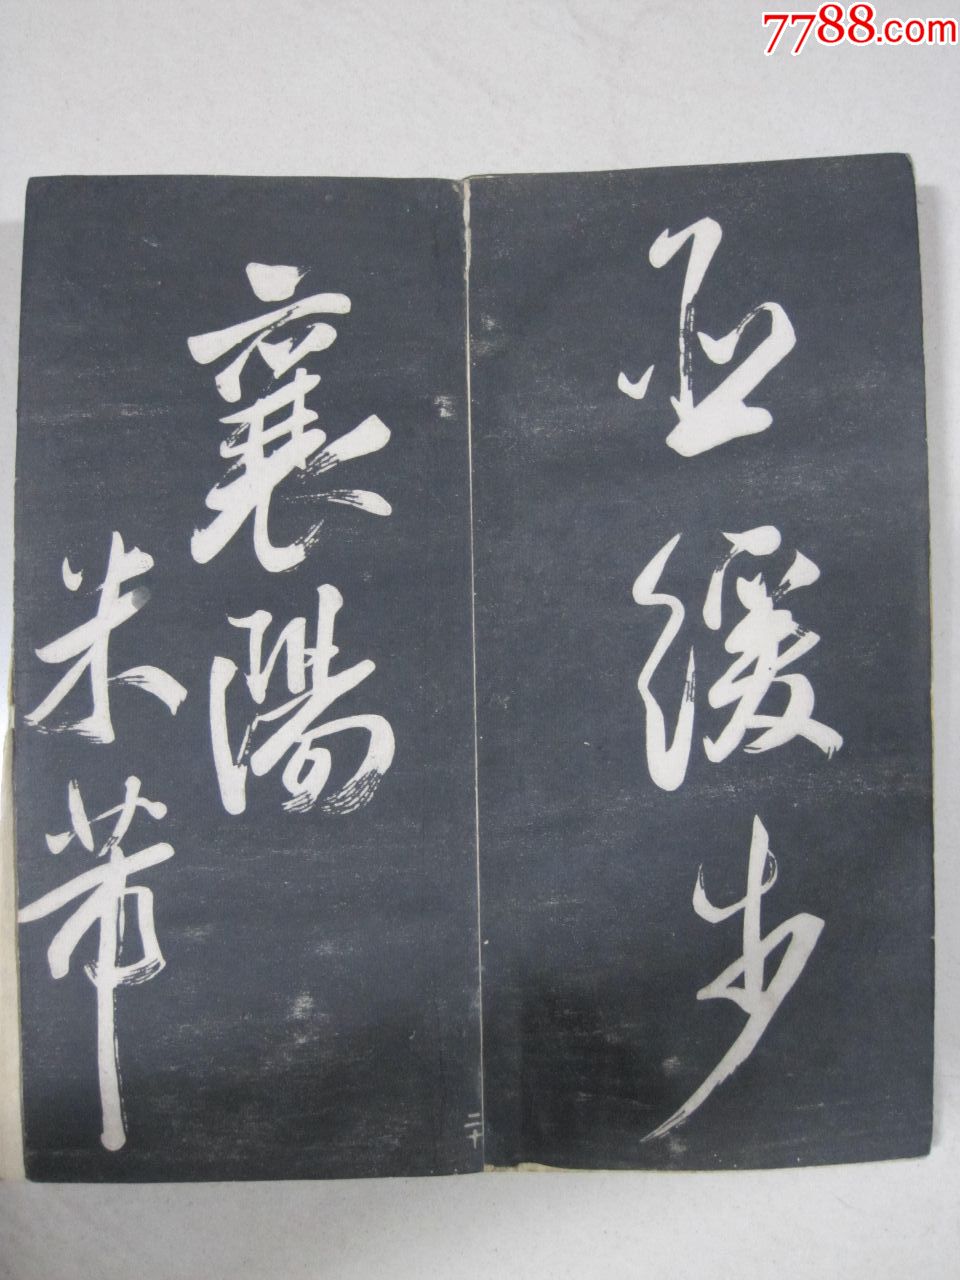 緩步
襄陽
米芾
二十
7788.com